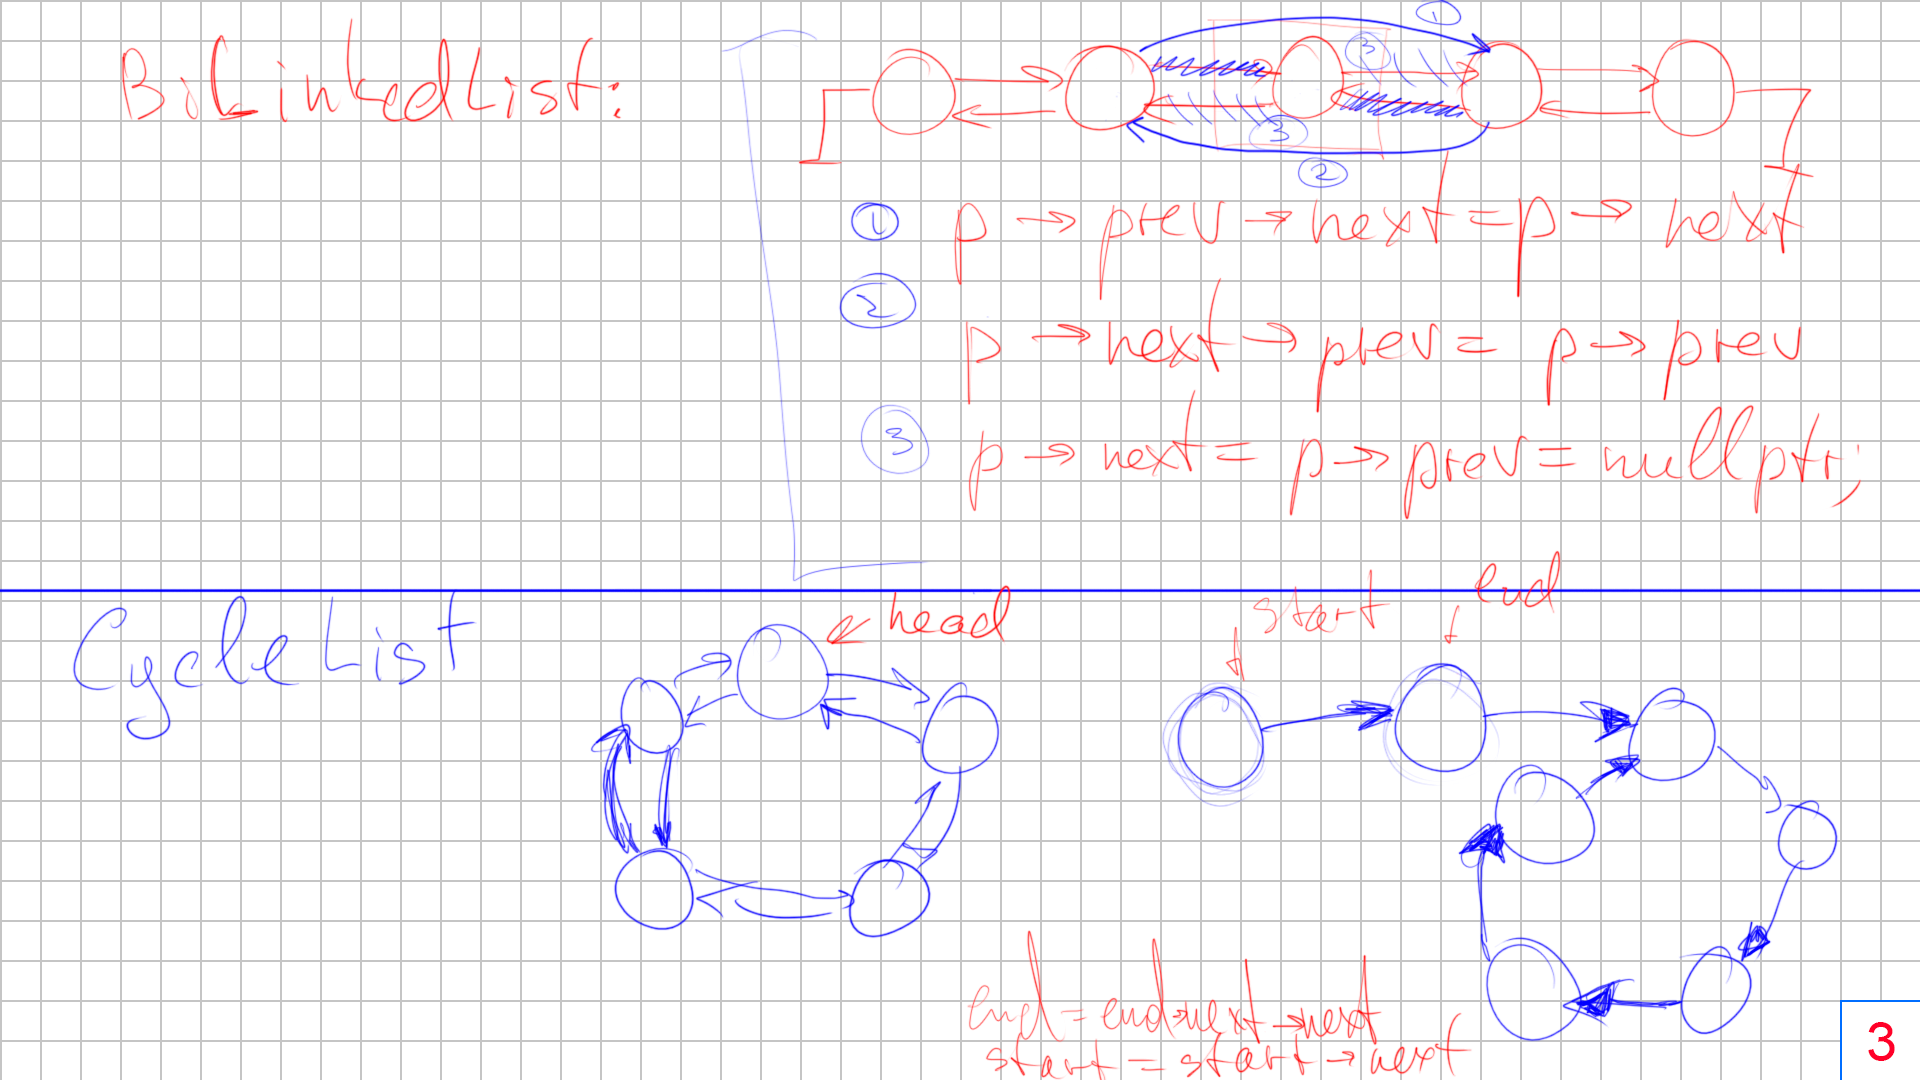 BiLinkedList:
① ③
③
②
① p → prev → next = p → next
② p → next → prev = p → prev
③ p → next = p → prev = nullptr;
Cycle List
head
start
end
end = end→next→next
start = start → next
3